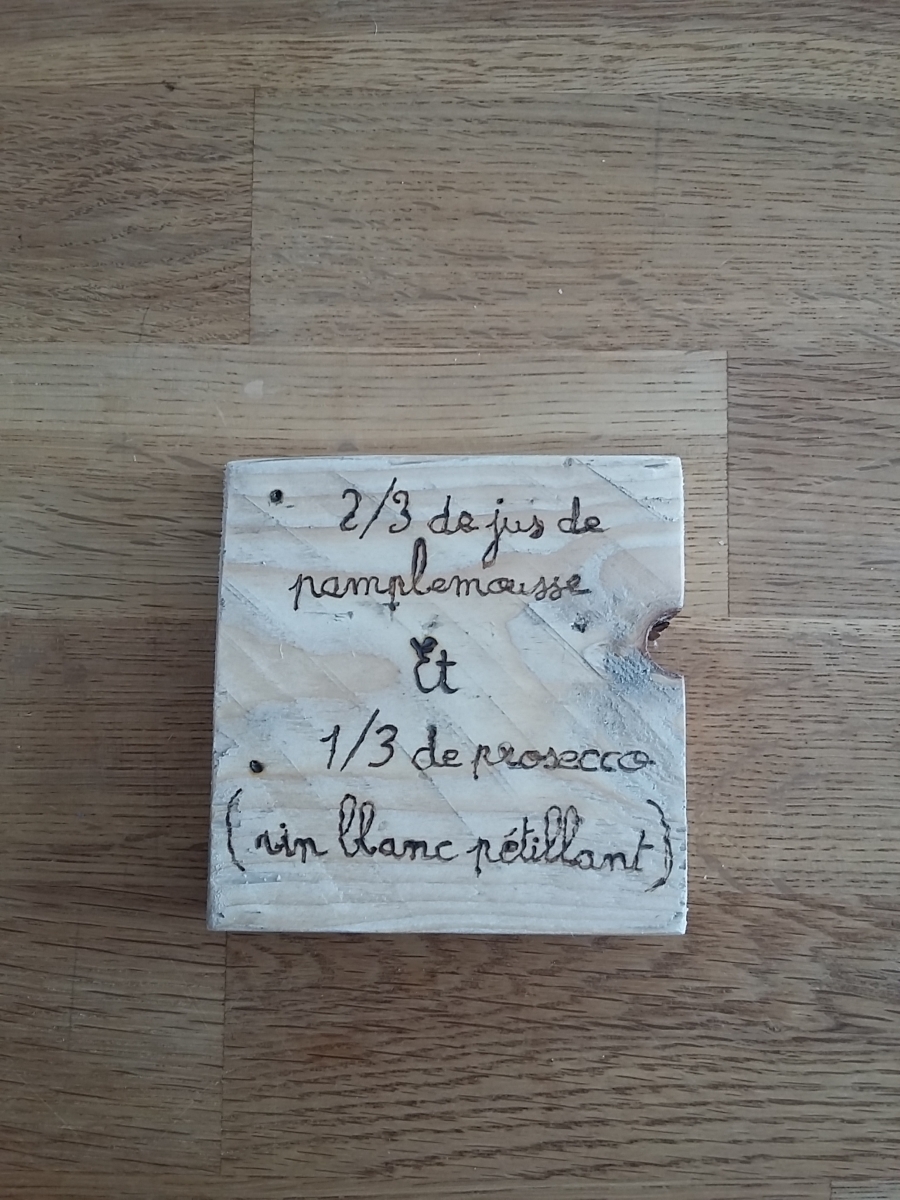 • 2/3 de jus de
pamplemousse
Et
• 1/3 de prosecco
(vin blanc pétillant)